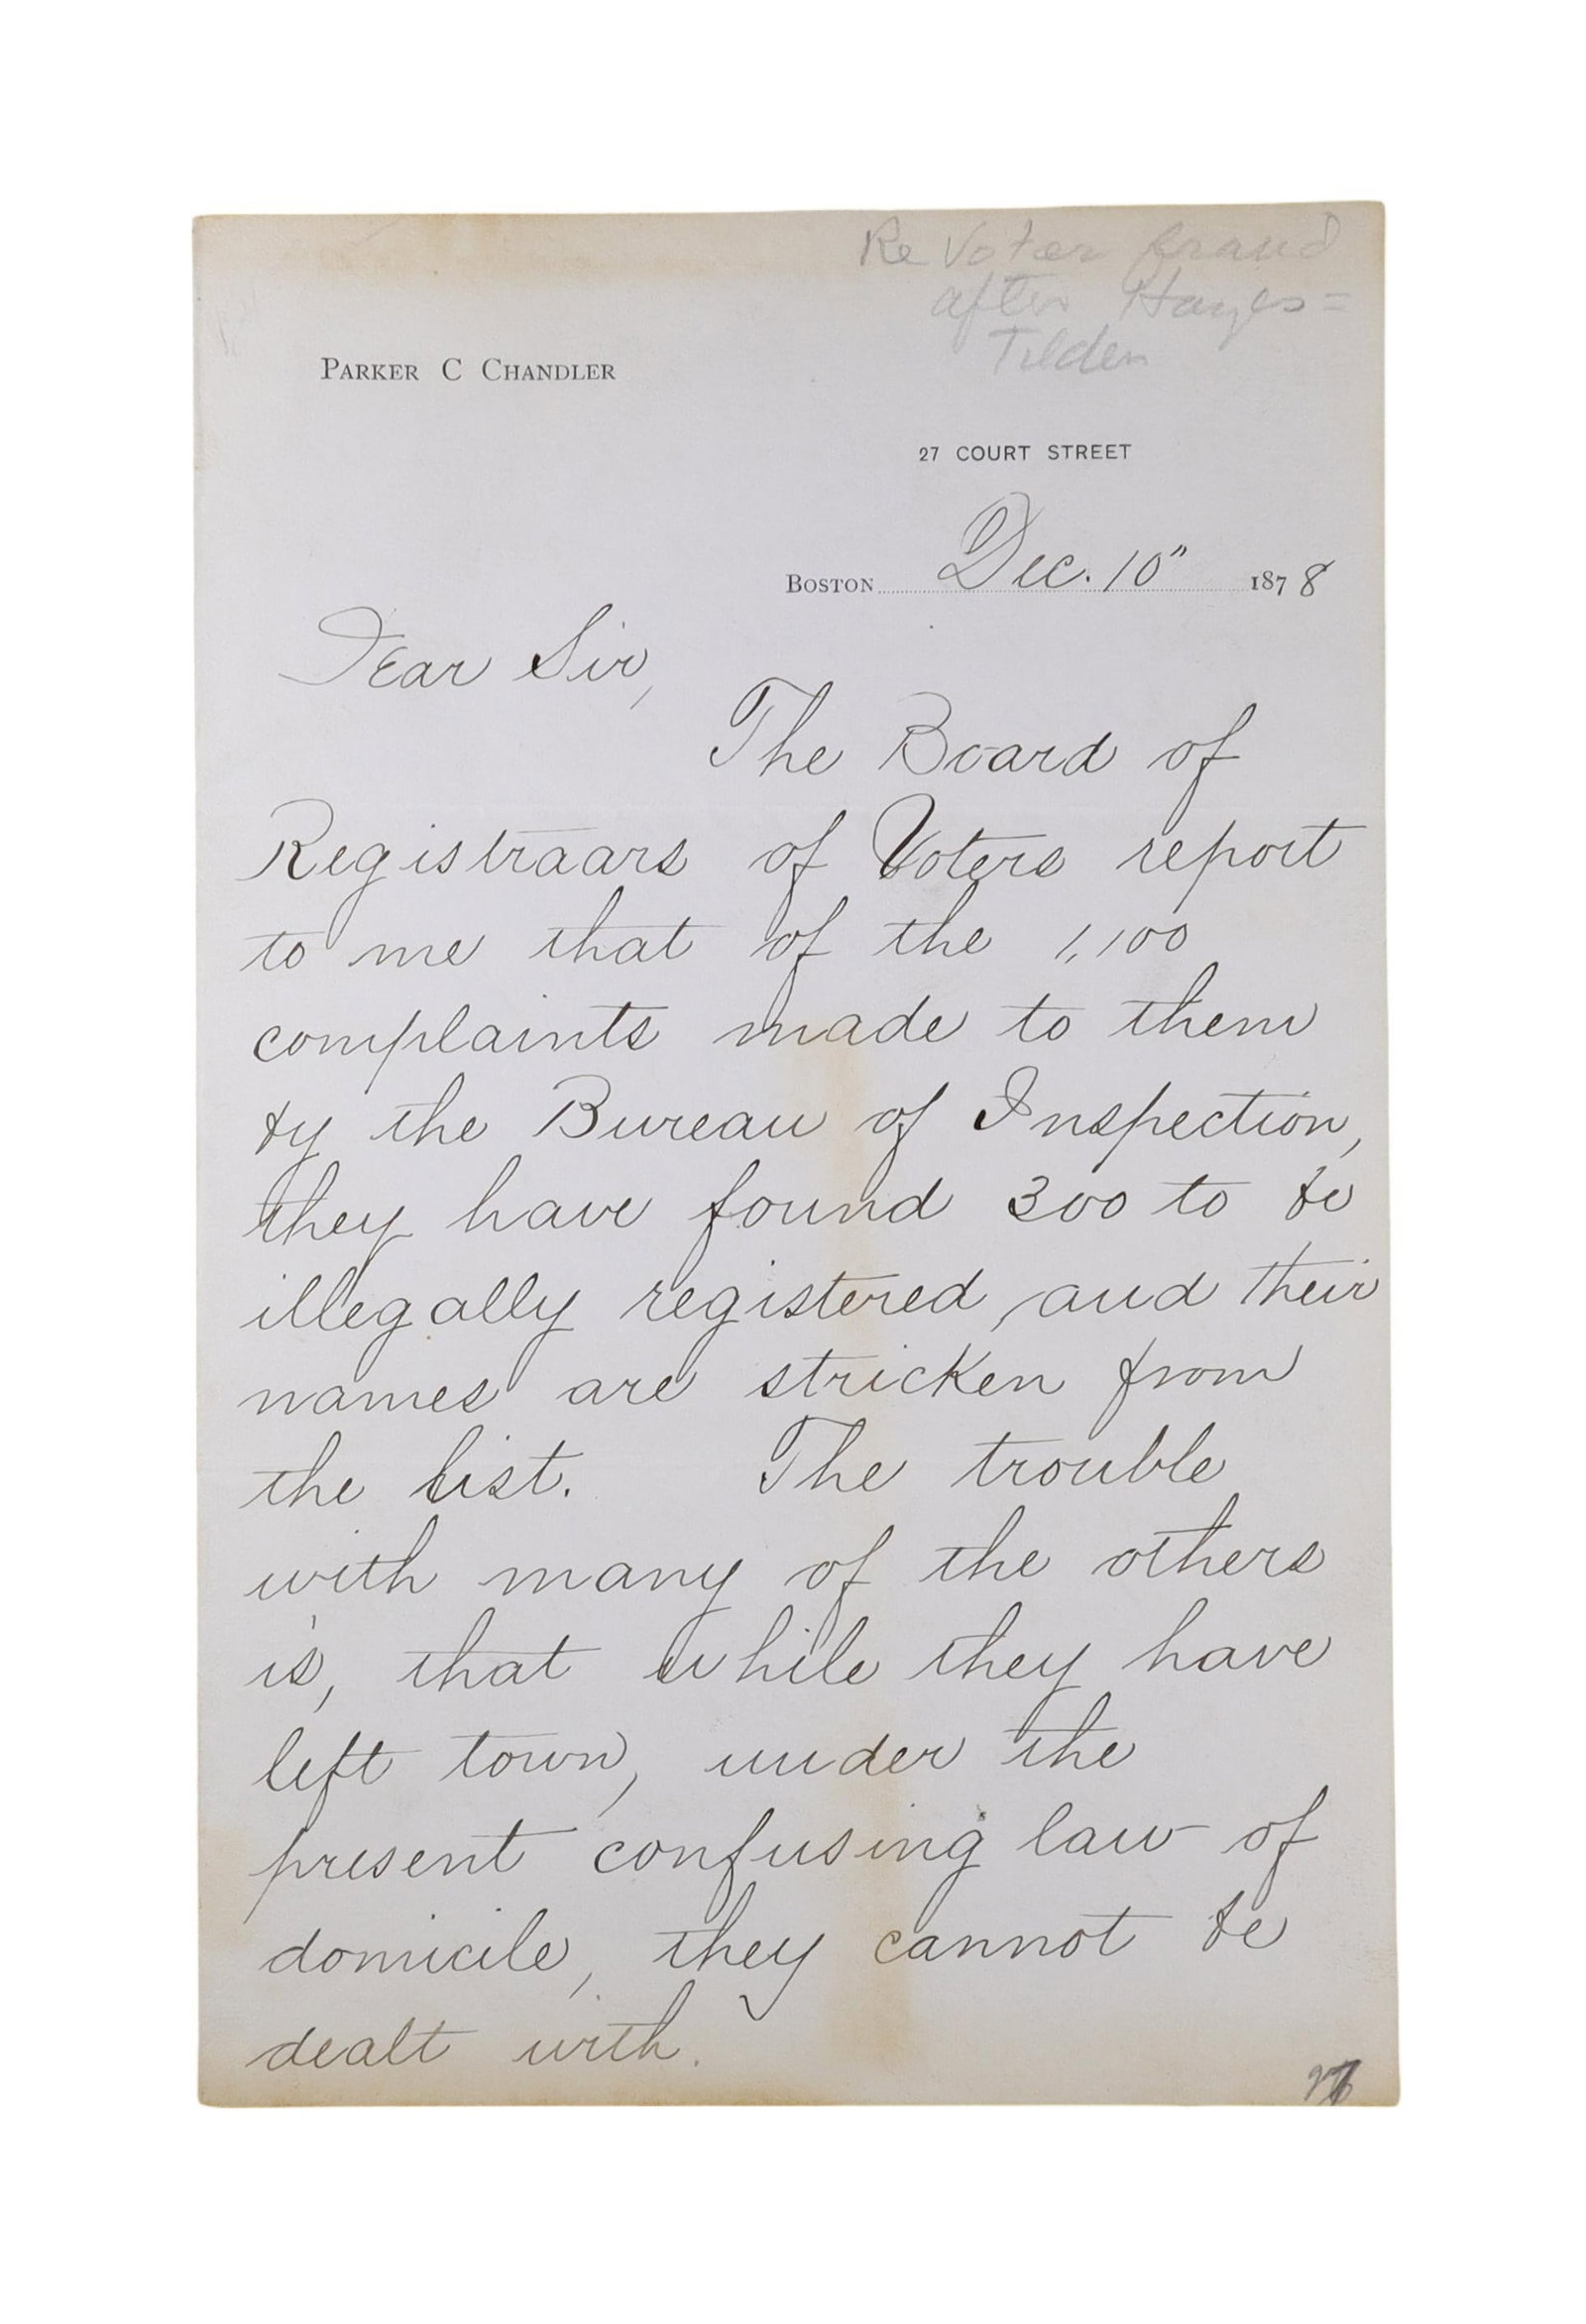 Re Voter fraud
after Hayes=
Tilden
PARKER C CHANDLER
27 COURT STREET
BOSTON Dec. 10" 1878
Dear Sir,
The Board of
Registraars of Voters report
to me that of the 1,100
complaints made to them
by the Bureau of Inspection,
they have found 300 to be
illegally registered, and their
names are stricken from
the list. The trouble
with many of the others
is, that while they have
left town, under the
present confusing law of
domicile, they cannot be
dealt with.